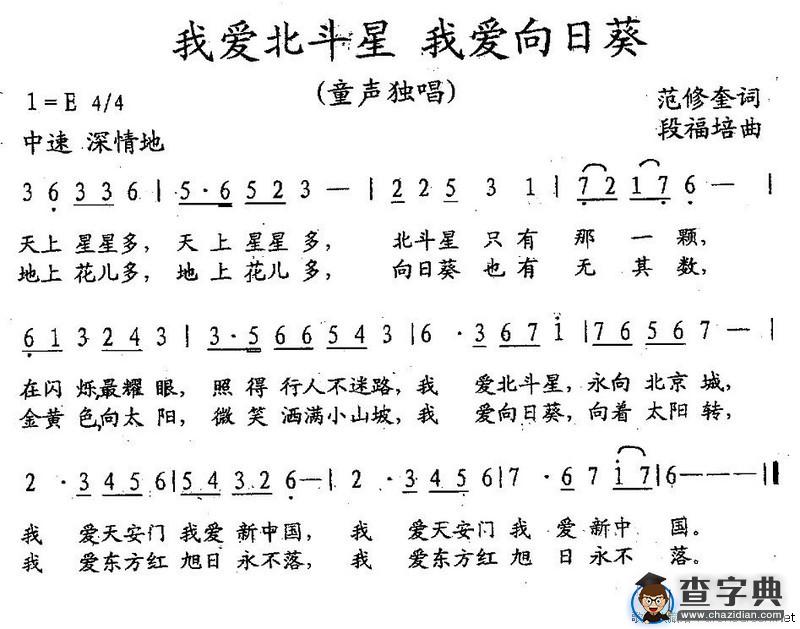 我爱北斗星 我爱向日葵
(童声独唱)
1=E 4/4
范修奎词
中速 深情地
段福培曲
3 6 3 3 6 | 5·6 5 2 3 — | 2 2 5 3 1 | 7 2 1 7 6 — |
天上 星星多， 天 上 星星 多， 北斗星 只 有 那 一 颗，
地上 花儿多， 地 上 花儿 多， 向日葵 也 有 无 其 数，
6 1 3 2 4 3 | 3·5 6 6 5 4 3 | 6 · 3 6 7 1 | 7 6 5 6 7 — |
在闪 烁最耀 眼， 照 得 行人不迷路，我 爱北斗星，永向 北京 城，
金黄 色向太 阳， 微 笑 洒满小山坡，我 爱向日葵，向着 太阳 转，
2 · 3 4 5 6 | 5 4 3 2 6 — | 2 · 3 4 5 6 | 7 · 6 7 1 7 | 6 — — — ‖
我 爱天安门 我爱 新中国， 我 爱天安门 我 爱 新中 国。
我 爱东方红 旭日 永不落， 我 爱东方红 旭 日 永不 落。
查字典
www.chazidian.com